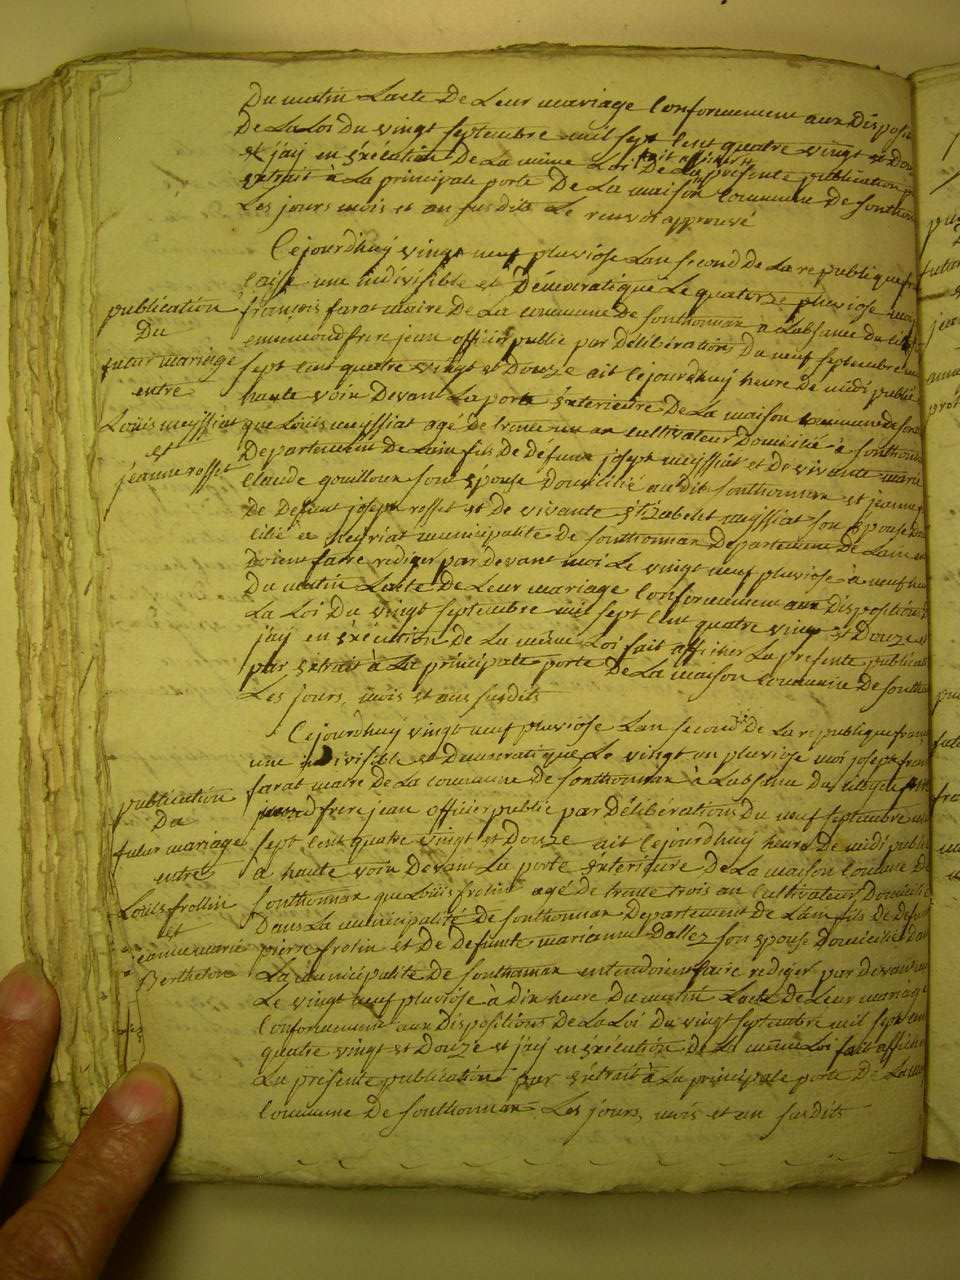 Du matin Lacte De Leur mariage Conformement aux Disposi
De La Loi Du vingt septembre mil sept Cent quatre vingt et Dou
et j'aij en exécution De La même Loi fait afficher De La présente publication p
extrait a La principale porte De La maison Commune De sonthon
Les jours mois et an susdits Le renvoi approuvé
Cejourd'huij vingt neuf pluviose Lan second De La republique fr
caise une indivisible et Démocratique Le quatorze pluviose moi
françois farat maire De La Commune De sonthonnax a Labsence du cit
emmond frere jean officier public par Délibération Du neuf septembre mil
sept Cent quatre vingt et Douze ait Cejourd'huij heure De midi publié
haute voix Devant La porte exterieure De La maison Commune De sont
que Louis meyssiat agé De trente un an Cultivateur Domicilié a sonthonn
Departement De Lain fils De Défunt joseph meyssiat et De vivante marie
Claude gouilloux son épouse Domicilié au dit sonthonnax et jeanne
De Defunt joseph rosset et De vivante Elizabeht meyssiat son épouse Do
cilié a heyriat municipalite De sonthonnax Departement De Lain en
doient faire rediger par devant moi Le vingt neuf pluviose à neuf heu
Du matin Lacte De Leur mariage Conformement aux Dispositions
La Loi Du vingt septembre mil sept Cent quatre vingt et Douze et
j'aij en exécution De La même Loi fait afficher La presente publicat
par extrait à La principale porte De La maison Commune De sontho
Les jours, mois et ans susdits
Cejourd'huij vingt neuf pluviose Lan second De La republique franç
une indivisible et Democratique Le vingt un pluviose moi joseph fran
farat maire De La commune De sonthonnax à Labsence Du citoyen
frere jean officier public par Délibération Du neuf septembre mil
sept Cent quatre vingt et Douze ait Cejourd'huij heure De midi publié
à haute voix Devant La porte exterieure De La maison Commune De
sonthonnax que Louis frolin agé De trente trois an Cultivateur Domicilié
Dans La municipalité De sonthonnax Departement De Lain fils De Defu
pierre frolin et De Defunte marianne Dallez son epouse Domicilié Dan
La municipalité De sonthonnax entendoient faire rediger par devant m
Le vingt neuf pluviose à dix heure Du matin Lacte De Leur mariage
Conformement aux Dispositions De La Loi Du vingt septembre mil sept cen
quatre vingt et Douze et j'aij en exécution De La même Loi fait affiche
La présente publication par extrait à La principale porte De La mai
Commune De sonthonnax Les jours, mois et an susdits
publication
Du
futur mariage
entre
Louis meyssiat
et
jeanne rosset
publication
Du
futur mariage
entre
Louis frollin
et
jeanne marie
Bertheton